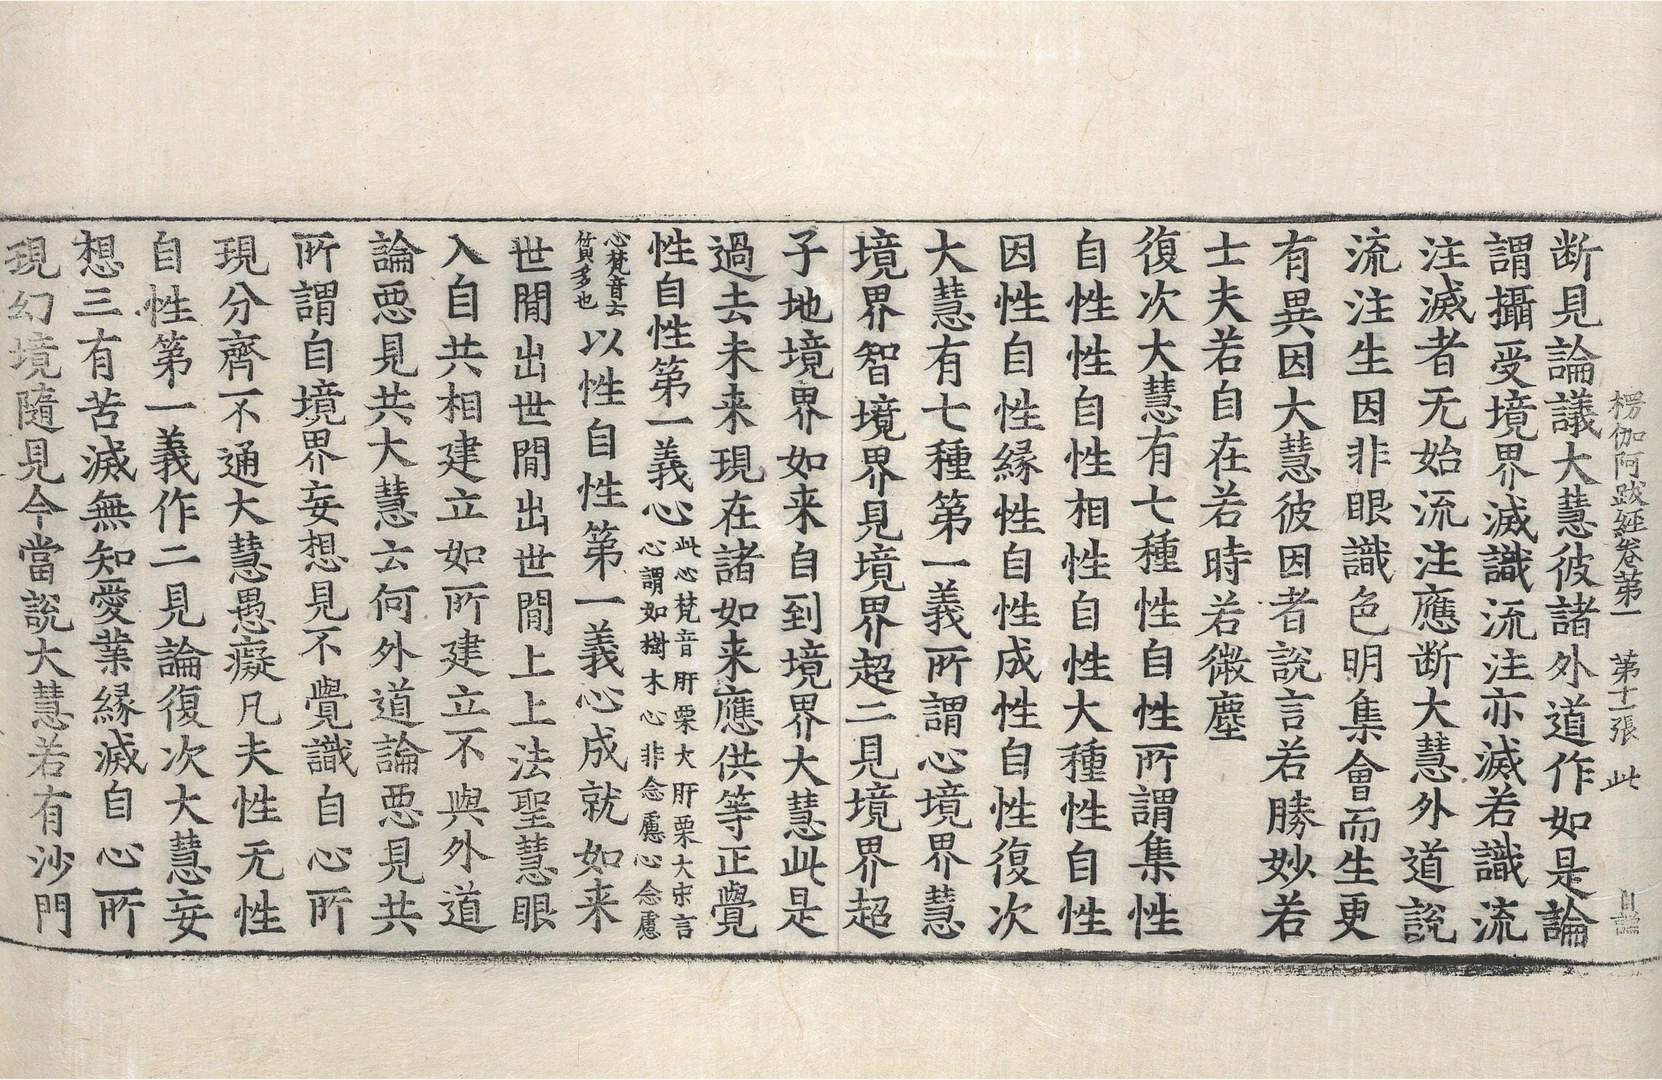 楞伽阿跋經卷第一　第十一張　此
断見論議大慧彼諸外道作如是論
謂攝受境界滅識流注亦滅若識流
注滅者无始流注應断大慧外道説
流注生因非眼識色明集會而生更
有異因大慧彼因者説言若勝妙若
士夫若自在若時若微塵
復次大慧有七種性自性所謂集性
自性性自性相性自性大種性自性
因性自性緣性自性成性自性復次
大慧有七種第一義所謂心境界慧
境界智境界見境界超二見境界超
子地境界如来自到境界大慧此是
過去未来現在諸如来應供等正覺
性自性第一義心此心梵音肝栗大肝栗大宋言
心謂如樹木心非念慮心念慮
心梵音云
質多也以性自性第一義心成就如来
世間出世間出世間上上法聖慧眼
入自共相建立如所建立不與外道
論惡見共大慧云何外道論惡見共
所謂自境界妄想見不覺識自心所
現分齊不通大慧愚癡凡夫性无性
自性第一義作二見論復次大慧妄
想三有苦滅無知愛業緣滅自心所
現幻境隨見今當説大慧若有沙門